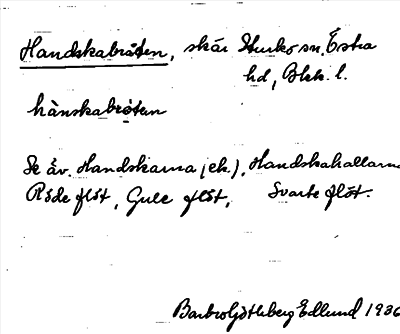 Handskabråten, skär Sturkö sn, Östra
hd, Blek. l.
hànskabrǫ̀ten
Se äv. Handskarna (ek.), Handskahallarna
Röde flöt, Gule flöt, Svarte flöt.
Barbro Götheberg Edlund 1936